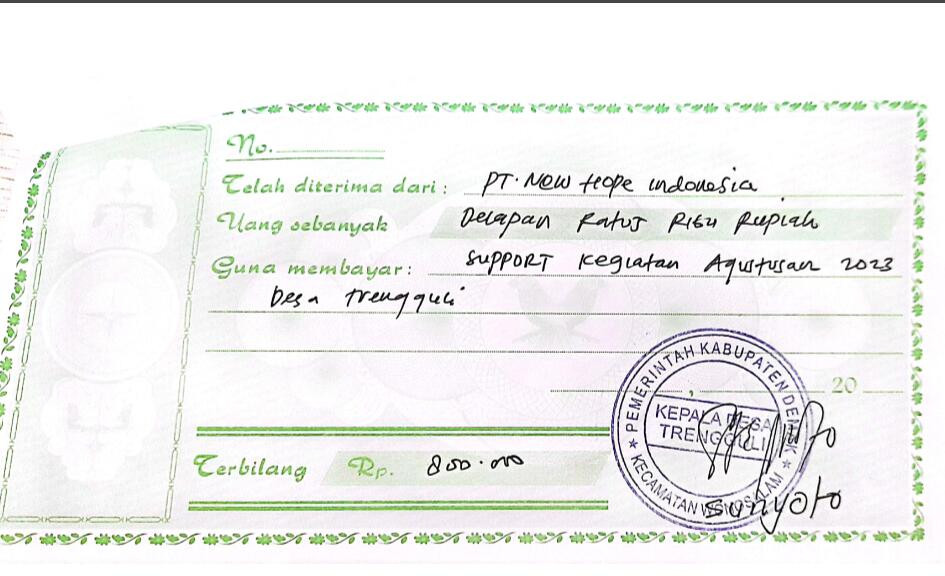 No.
Telah diterima dari : PT. New Hope Indonesia
Uang sebanyak Delapan Ratus Ribu Rupiah
Guna membayar : Support Kegiatan Agustusan 2023
Desa Trengguli
, 20
PEMERINTAH KABUPATEN DEMAK
KEPALA DESA
TRENGGULI
KECAMATAN WONOSALAM
Terbilang Rp. 800.000
Sunyoto